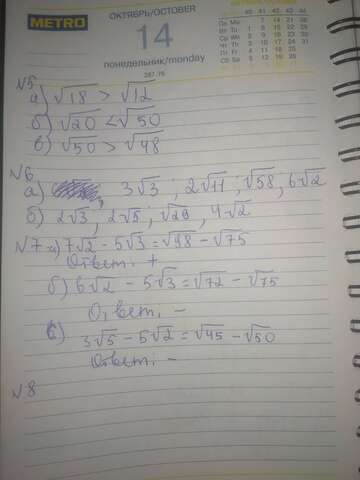 METRO
ОКТЯБРЬ/OCTOBER
14
понедельник/monday
287/78
40 41 42 43 44
Пн Mo 7 14 21 28
Вт Tu 1 8 15 22 29
Ср We 2 9 16 23 30
Чт Th 3 10 17 24 31
Пт Fr 4 11 18 25
Сб Sa 5 12 19 26
№5
а) √18 > √12
б) √20 < √50
в) √50 > √48
№6
а) 3√3 ; 2√11 ; √58 ; 6√2
б) 2√3 ; 2√5 ; √29 ; 4√2
№7 а) 7√2 - 5√3 = √98 - √75
Ответ. +
б) 6√2 - 5√3 = √72 - √75
Ответ. -
в) 3√5 - 5√2 = √45 - √50
Ответ. -
№8